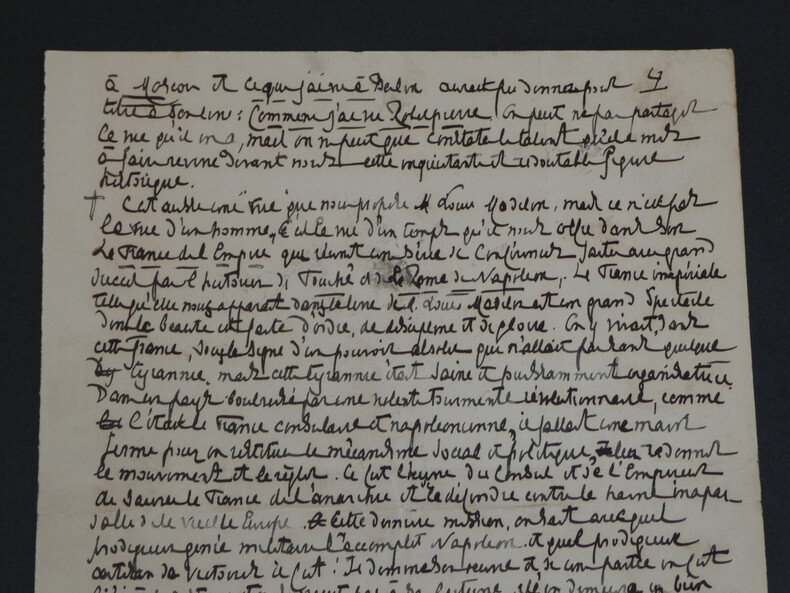 à Moscou et ce que j'ai vu à Berlin aurait pu donner pour 4
titre à son livre : Comment j'ai vu Robespierre. On peut ne pas partager
la vue qu'il en a, mais on ne peut que constater le talent qu'elle met
à faire revivre devant nous cette inquiétante et redoutable figure
historique.
† C'est aussi une "vue" que nous propose M. Louis Madelin, mais ce n'est pas
la vue d'un homme, c'est la vue d'un temps qu'il nous offre dans son
La France de l'Empire qui réunit une série de Conférences faites avec grand
succès par l'historien de Fouché et de la Rome de Napoléon. La France impériale
telle qu'elle nous apparaît dans le livre de M. Louis Madelin est un grand spectacle
dont la beauté est faite d'ordre, de discipline et de gloire. On y vivait, dans
cette France, sous le signe d'un pouvoir absolu qui n'allait pas sans quelque
tyrannie, mais cette tyrannie était saine et puissamment organisatrice.
Dans un pays bouleversé par une violente tourmente révolutionnaire, comme
l'était la France consulaire et napoléonienne, il fallait une main
ferme pour en restituer le mécanisme social et politique, lui redonner
le mouvement et le régler. Ce fut l'œuvre du Consul et de l'Empereur
de sauver la France de l'anarchie et de la défendre contre la haine inapai-
sable de la vieille Europe. Cette dernière mission, on sait avec quel
prodigieux génie militaire l'accomplit Napoléon et quel prodigieux
artisan de victoires il fut ! Si de son œuvre une partie en fut